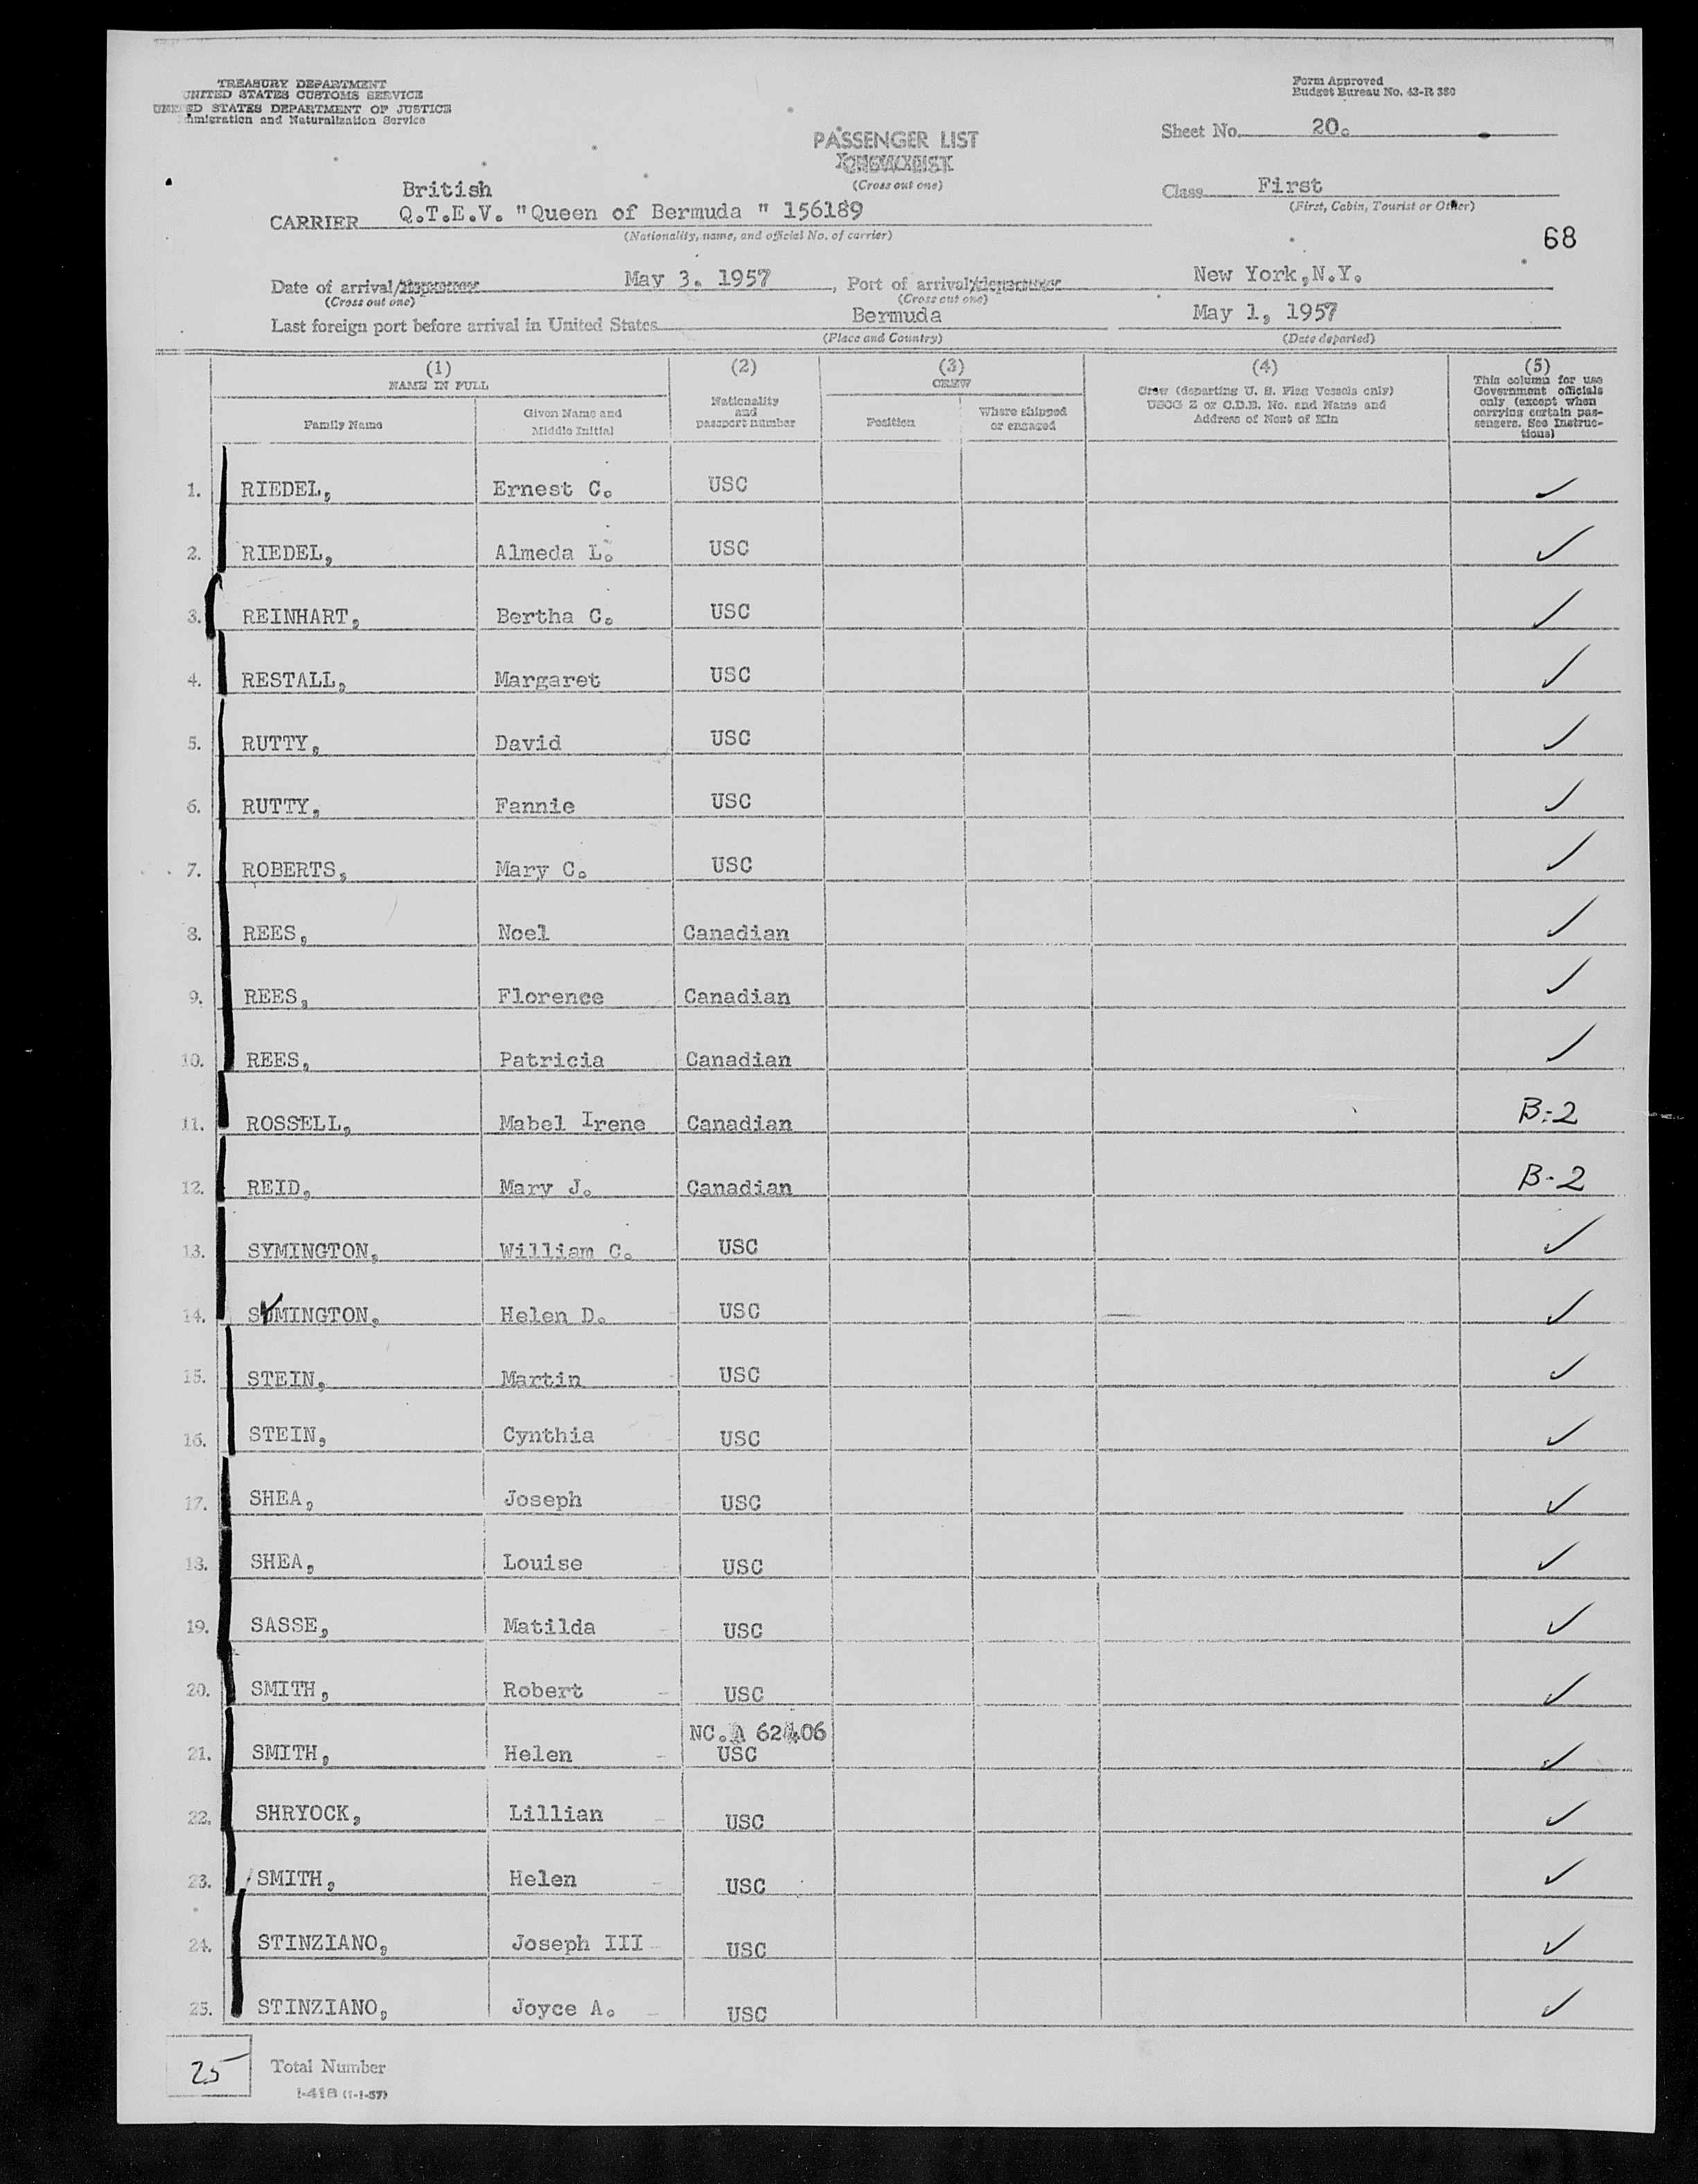 TREASURY DEPARTMENT
UNITED STATES CUSTOMS SERVICE
UNITED STATES DEPARTMENT OF JUSTICE
Immigration and Naturalization Service
Form Approved
Budget Bureau No. 43-R 380
Sheet No. 20.
PASSENGER LIST
(Cross out one)
Class First
(First, Cabin, Tourist or Other)
British
CARRIER Q.T.E.V. "Queen of Bermuda " 156189
(Nationality, name, and official No. of carrier)
68
Date of arrival/departure May 3. 1957, Port of arrival/departure New York,N.Y.
(Cross out one) (Cross out one)
Last foreign port before arrival in United States Bermuda May 1, 1957
(Place and Country) (Date departed)
(1) (2) (3) (4) (5)
NAME IN FULL
Family Name
Given Name and Middle Initial
Nationality and passport number
CREW
Position
Where shipped or engaged
Crew (departing U. S. Flag Vessels only)
USCG Z or C.D.B. No. and Name and
Address of Next of Kin
This column for use
Government officials
only (except when
carrying certain pas-
sengers. See Instruc-
tions)
1. RIEDEL, Ernest C. USC ✓
2. RIEDEL, Almeda L. USC ✓
3. REINHART, Bertha C. USC ✓
4. RESTALL, Margaret USC ✓
5. RUTTY, David USC ✓
6. RUTTY, Fannie USC ✓
7. ROBERTS, Mary C. USC ✓
8. REES, Noel Canadian ✓
9. REES, Florence Canadian ✓
10. REES, Patricia Canadian ✓
11. ROSSELL, Mabel Irene Canadian B-2
12. REID, Mary J. Canadian B-2
13. SYMINGTON, William C. USC ✓
14. SYMINGTON, Helen D. USC ✓
15. STEIN, Martin USC ✓
16. STEIN, Cynthia USC ✓
17. SHEA, Joseph USC ✓
18. SHEA, Louise USC ✓
19. SASSE, Matilda USC ✓
20. SMITH, Robert USC ✓
NC.A 62406
21. SMITH, Helen USC ✓
22. SHRYOCK, Lillian USC ✓
23. SMITH, Helen USC ✓
24. STINZIANO, Joseph III USC ✓
25. STINZIANO, Joyce A. USC ✓
25 Total Number
I-418 (1-1-57)